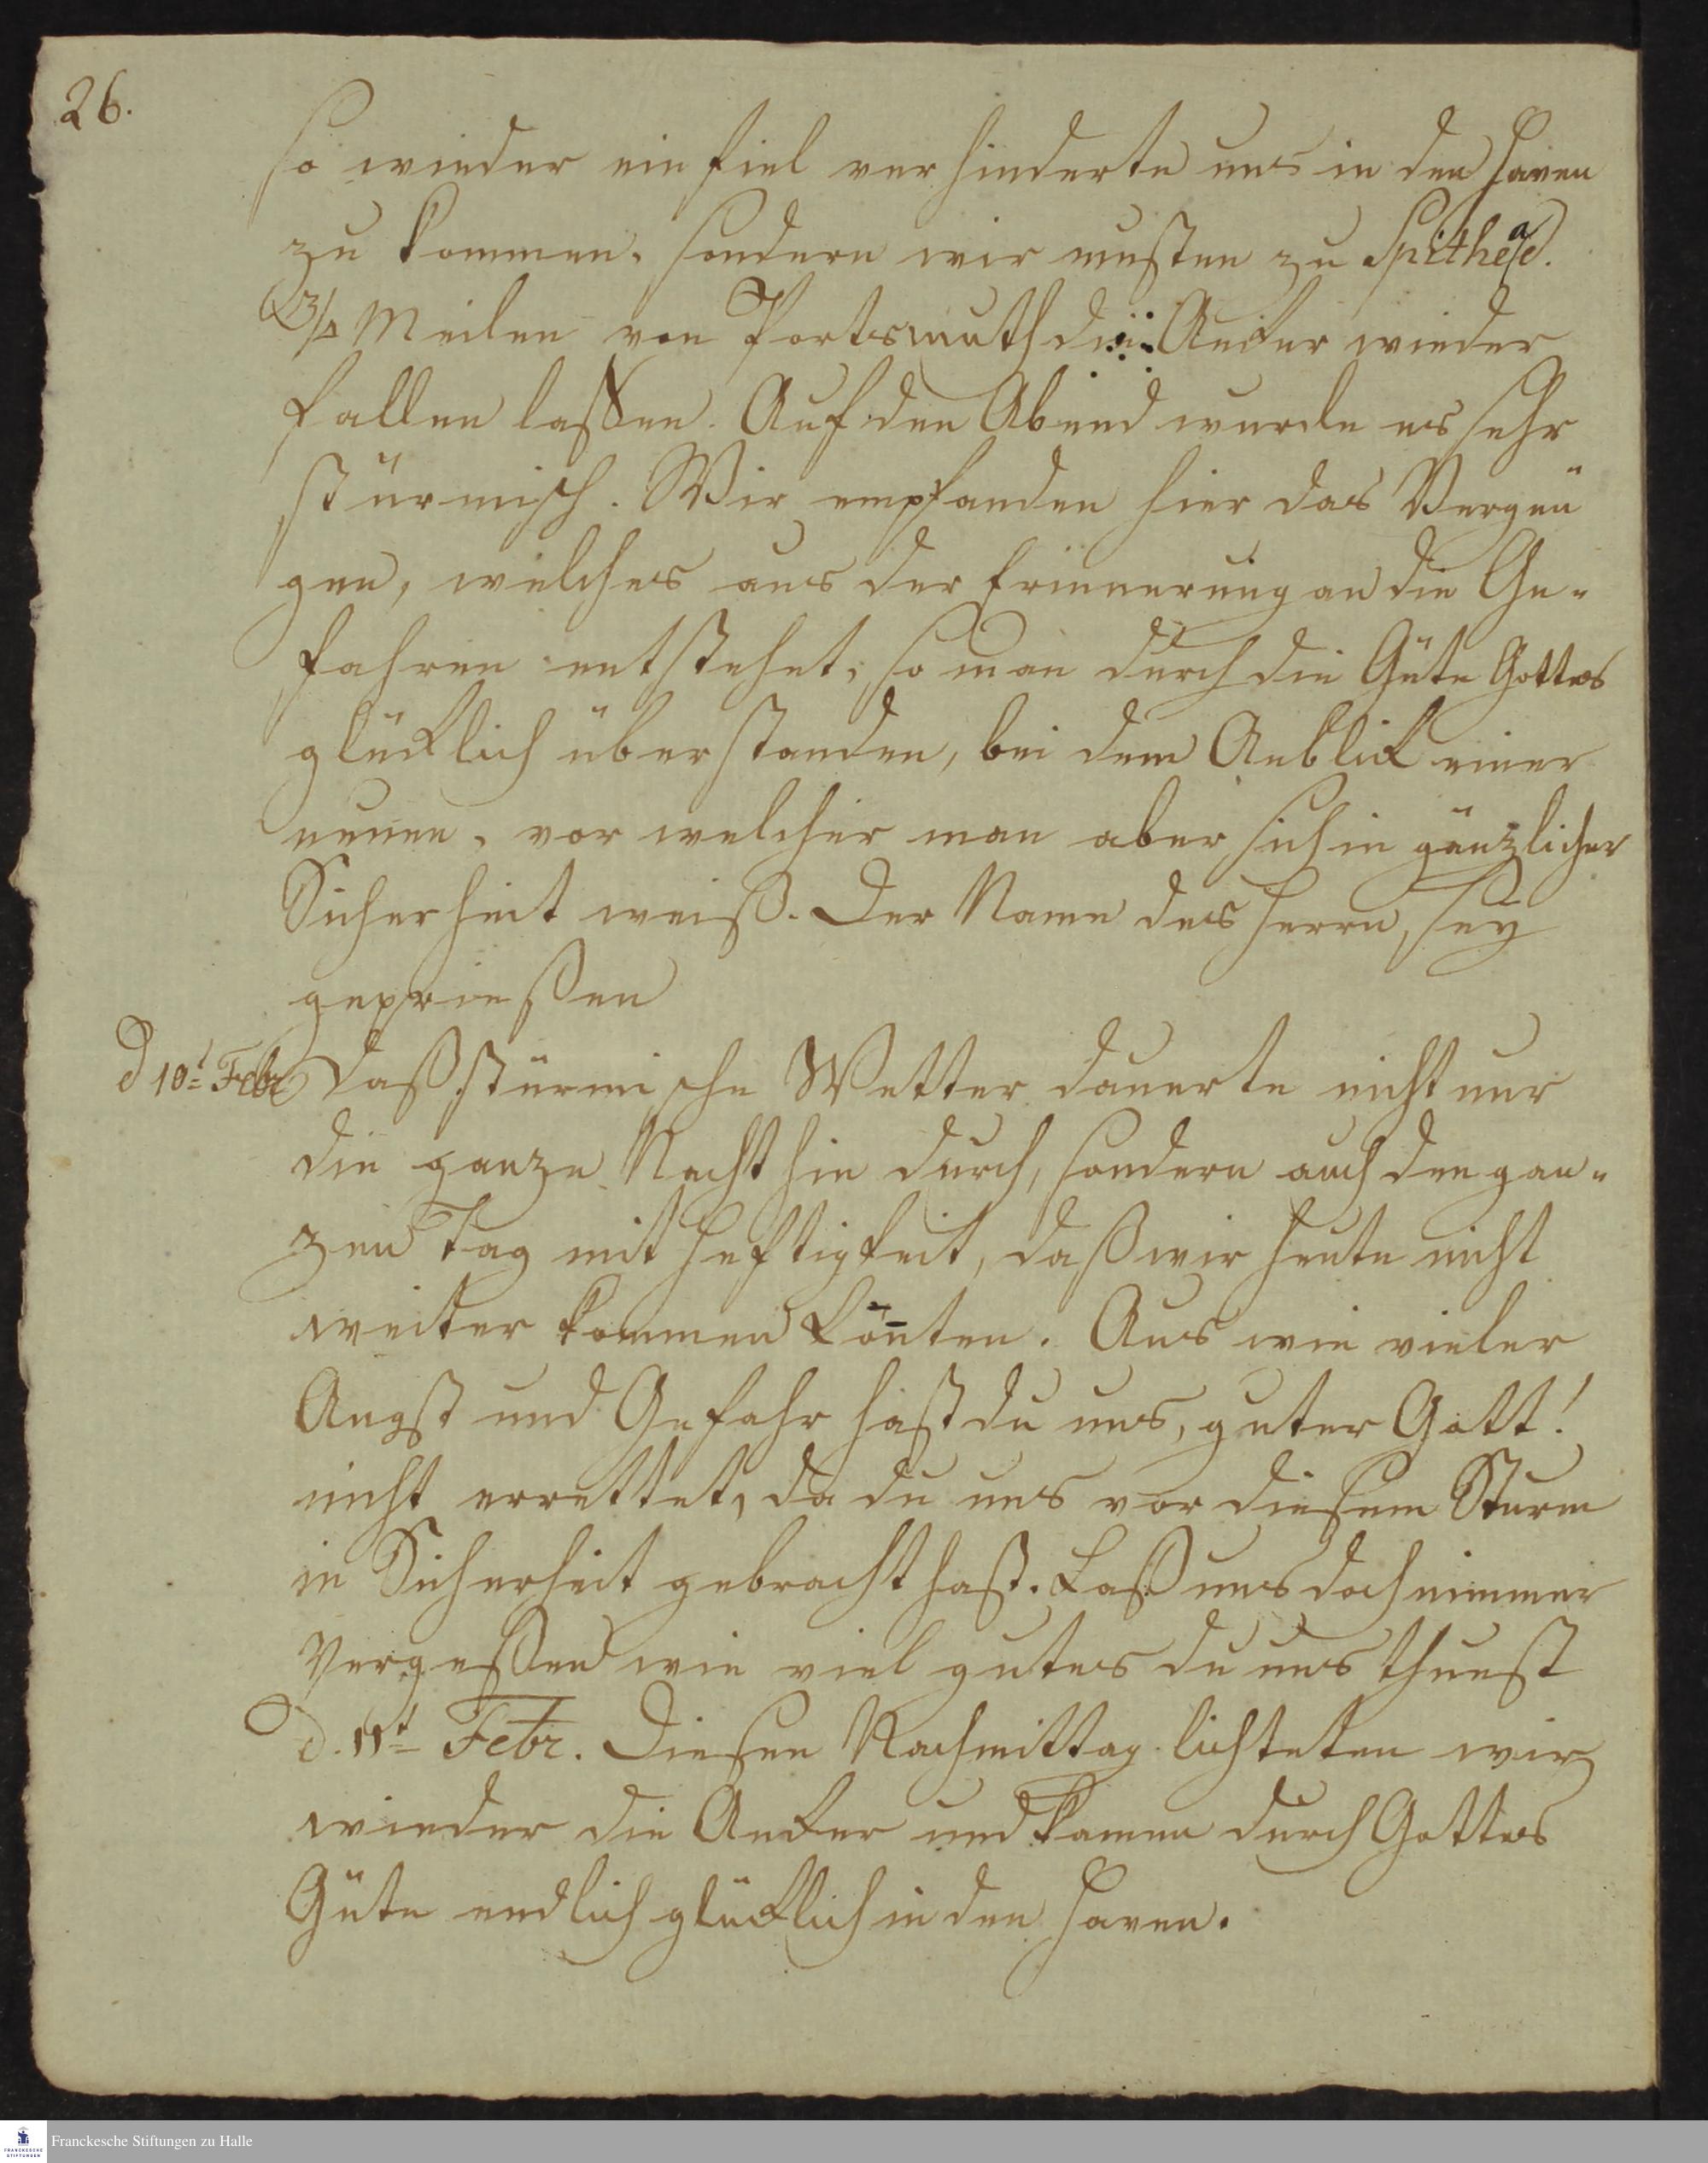 26.
so wieder einfiel verhinderte uns in den Haven
zu kommen, sondern wir musten zu Spithead.
3/4 Meilen von Portsmuth die Anker wieder
fallen laßen. Auf den Abend wurde es sehr
stürmisch. Wir empfanden hier das Vergnü
gen, welches aus der Erinnerung an die Ge-
fahren entstehet, so man durch die Güte Gottes
glücklich überstanden, bei dem Anblick einer
neuen, vor welcher man aber sich in gänzlicher
Sicherheit weiß. Der Name des Herrn sey
geprießen
d 10t Febr Daß stürmische Wetter dauerte nicht nur
die ganze Nacht hin durch, sondern auch den gan-
zen Tag mit Heftigkeit, daß wir heute nicht
weiter kommen konten. Aus wie vieler
Angst und Gefahr hast du uns, guter Gott!
nicht errettet, da du uns vor diesem Sturm
in Sicherheit gebracht hast. Laß uns doch nimmer
Vergeßen wie viel gutes du uns thuest
d. 11t Febr. Diesen Nachmittag lichteten wir
wieder die Anker und kamen durch Gottes
Güte endlich glücklich in den Haven.
Franckesche Stiftungen zu Halle